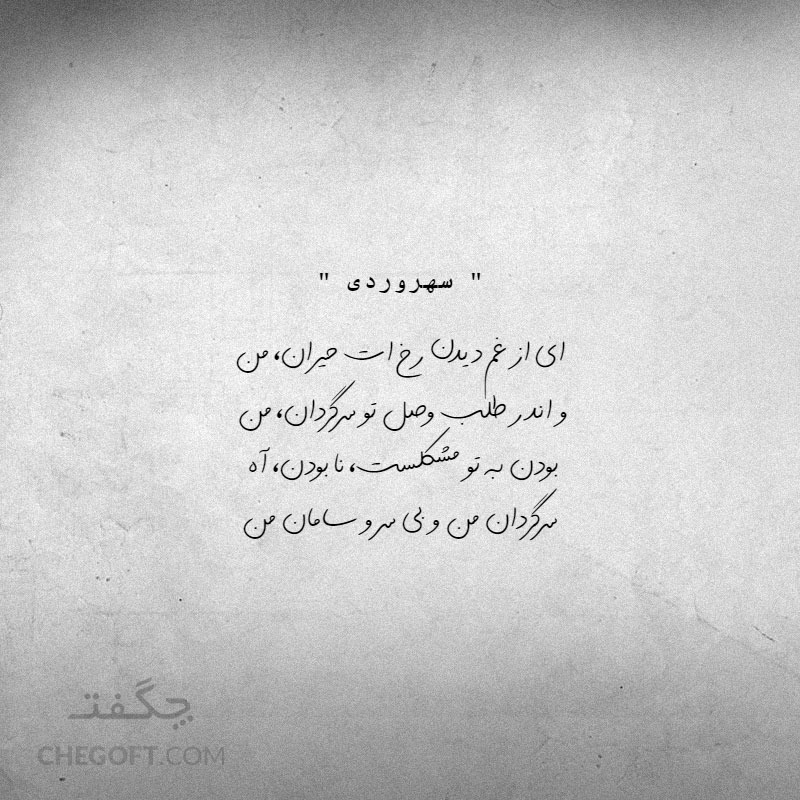 " سهروردی "
ای از غم دیدن رخ ات حیران، من
و اندر طلب وصل تو سرگردان، من
بودن به تو مشکلست، نابودن، آه
سرگردان من و بی سر و سامان من
چگفت
CHEGOFT.COM